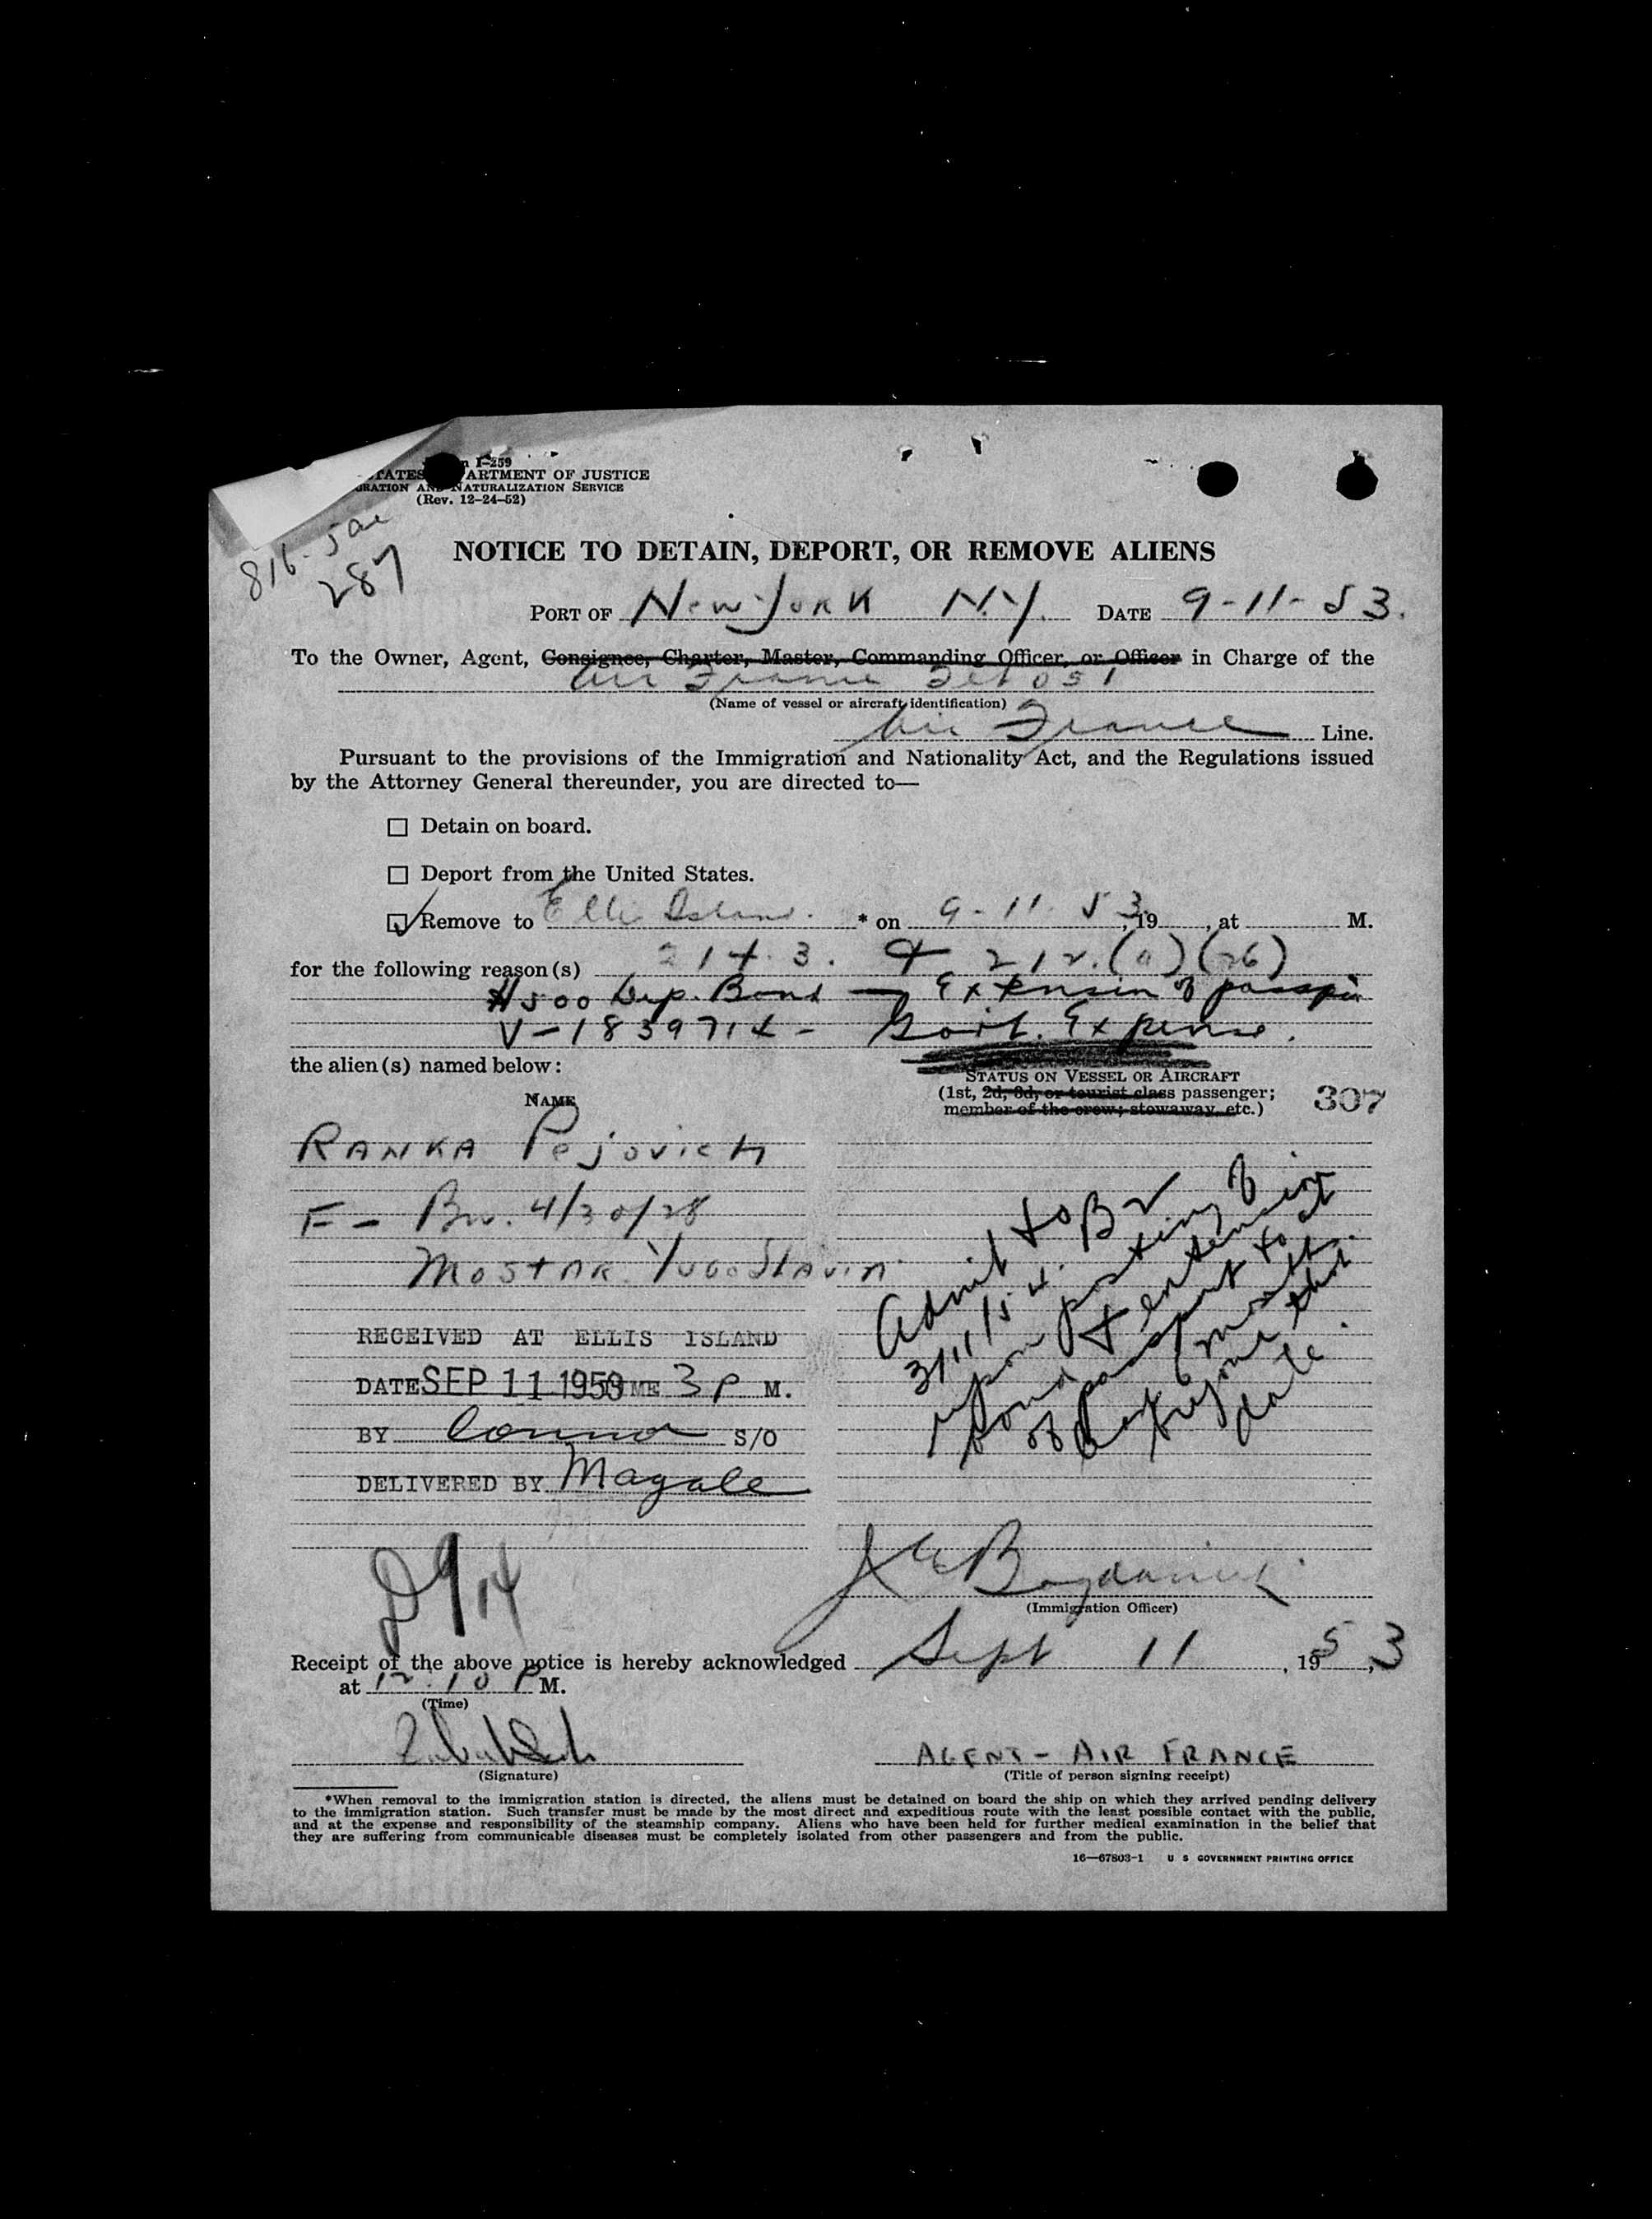 I-259
STATES ARTMENT OF JUSTICE
RATION AND NATURALIZATION SERVICE
(Rev. 12-24-52)
816-
287
NOTICE TO DETAIN, DEPORT, OR REMOVE ALIENS
PORT OF New York N.Y. DATE 9-11-53.
To the Owner, Agent, Consignee, Charter, Master, Commanding Officer, or Officer in Charge of the
Air France 051
(Name of vessel or aircraft identification)
Air France Line.
Pursuant to the provisions of the Immigration and Nationality Act, and the Regulations issued
by the Attorney General thereunder, you are directed to—
Detain on board.
Deport from the United States.
Remove to Ellis Island. * on 9-11-53, 19 , at M.
for the following reason(s) 214.3. + 212.(a)(26)
$500 Dep. Bond — Extension of passpo
V-1839714- Govt. Expense.
the alien(s) named below:
STATUS ON VESSEL OR AIRCRAFT
(1st, 2d, 3d, or tourist class passenger;
member of the crew; stowaway, etc.)
307
NAME
RANKA Pejovich
F- Bn. 4/30/28
Mostar Yugoslavia
RECEIVED AT ELLIS ISLAND
DATE SEP 11 1953 TIME 3 P M.
BY Connor S/O
DELIVERED BY Magale
Admit to B2
3/11/54.
upon posting of
bond & extension
of passport to at
least 6 months
beyond that
date.
D 9/14
J Bogdanski
(Immigration Officer)
Receipt of the above notice is hereby acknowledged Sept 11, 1953,
at 12.10 P M.
(Time)
AGENT - AIR FRANCE
(Signature)
(Title of person signing receipt)
*When removal to the immigration station is directed, the aliens must be detained on board the ship on which they arrived pending delivery
to the immigration station. Such transfer must be made by the most direct and expeditious route with the least possible contact with the public,
and at the expense and responsibility of the steamship company. Aliens who have been held for further medical examination in the belief that
they are suffering from communicable diseases must be completely isolated from other passengers and from the public.
16—67803-1 U S GOVERNMENT PRINTING OFFICE